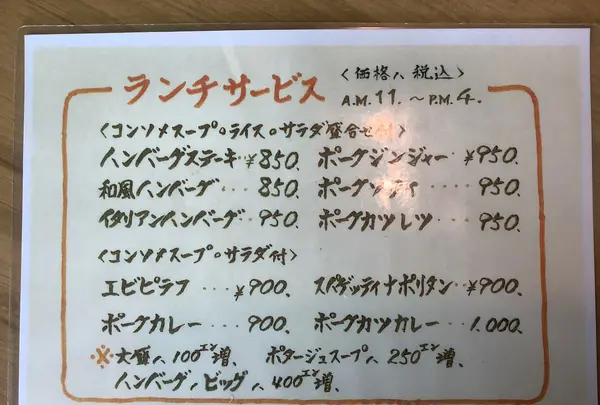 ランチサービス 〈価格ハ税込〉
A.M.11.〜P.M.4.
〈コンソメスープ。ライス。サラダ盛合せ付〉
ハンバーグステーキ ¥850. ポークジンジャー ¥950.
和風ハンバーグ ··· 850. ポークソティ ··· 950.
イタリアンハンバーグ ·· 950. ポークカツレツ ·· 950.
〈コンソメスープ。サラダ付〉
エビピラフ ··· ¥900. スパゲッティナポリタン ·· ¥900.
ポークカレー ···· 900. ポークカツカレー ··· 1.000.
※大盛ハ100エン増. ポタージュスープハ250エン増.
ハンバーグノビッグハ400エン増.